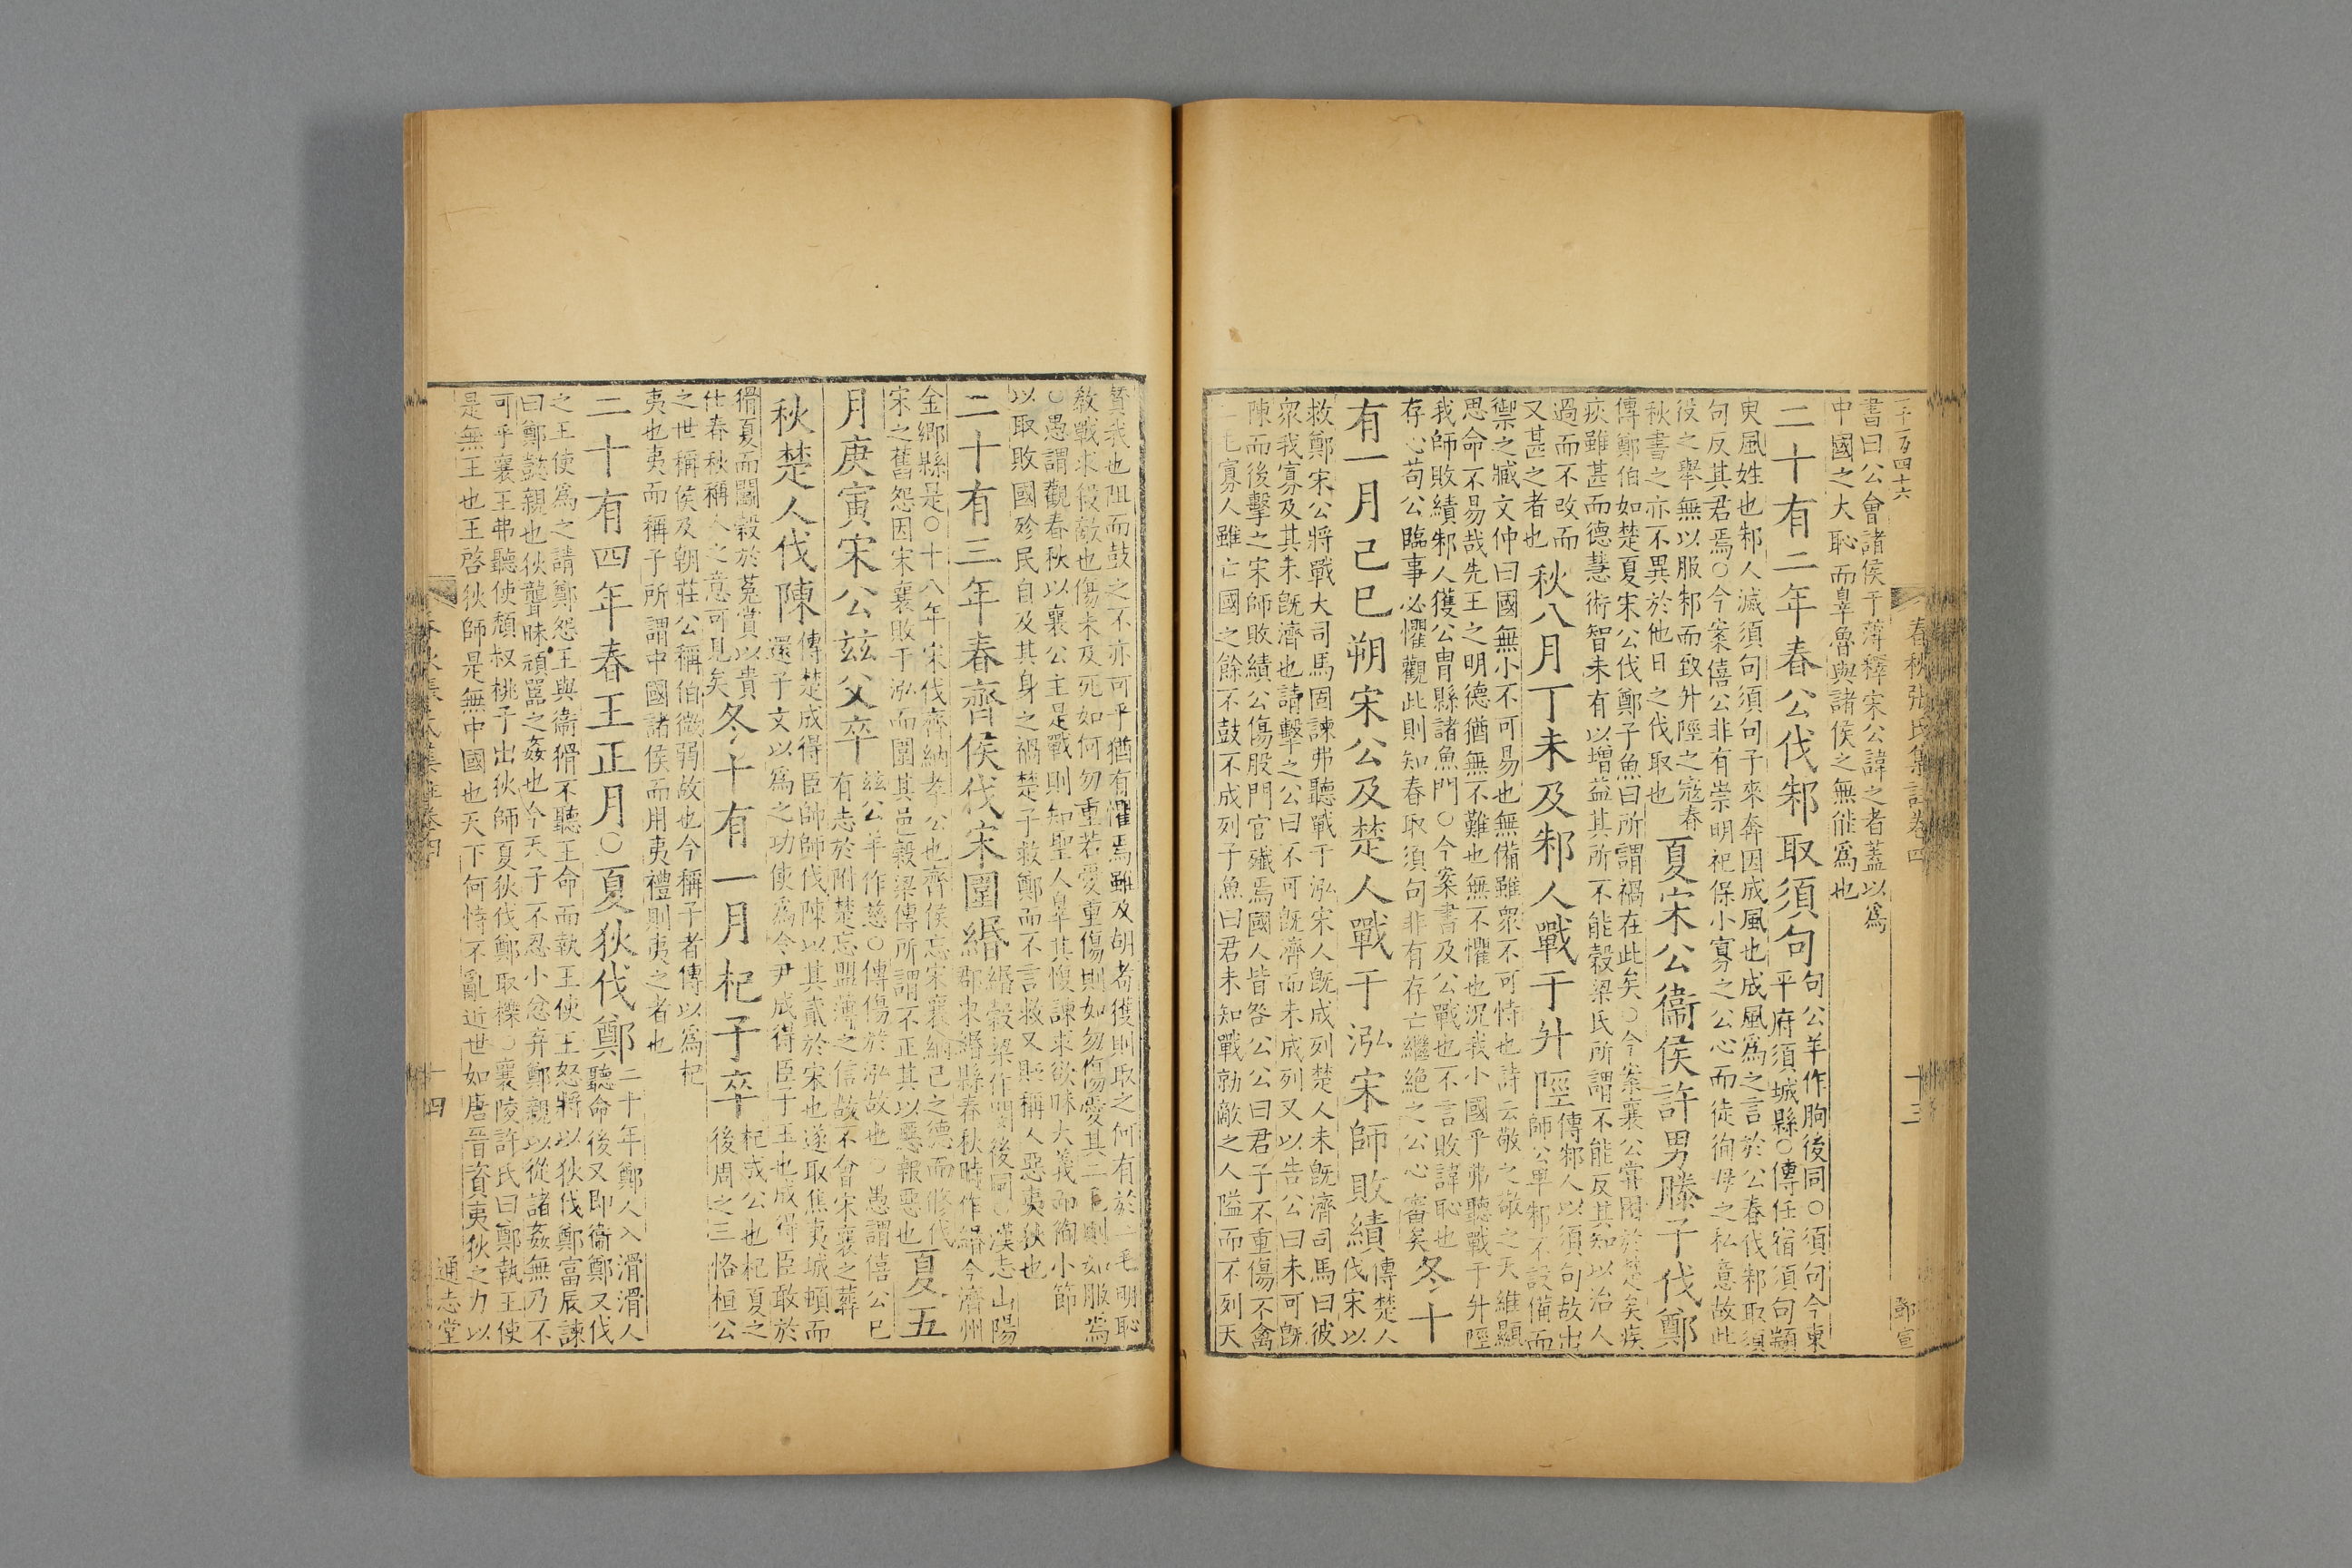 書曰公會諸侯于薄釋宋公諱之者蓋以爲
中國之大恥而辠魯與諸侯之無能爲也
二十有二年春公伐邾取須句
句公羊作朐後同○須句今東
平府須城縣○傳任宿須句顓
臾風姓也邾人滅須句須句子來奔因成風也成風爲之言於公春伐邾取須
句反其君焉○今案僖公非有崇明祀保小寡之公心而徒徇母之私意故此
役之舉無以服邾而致升陘之寇春
秋書之亦不異於他日之伐取也
夏宋公衞侯許男滕子伐鄭
傳鄭伯如楚夏宋公伐鄭子魚曰所謂禍在此矣○今案襄公嘗困於楚矣疾
疢雖甚而德慧術智未有以增益其所不能穀梁氏所謂不能反其知以治人
過而不改而
又甚之者也
秋八月丁未及邾人戰于升陘
傳邾人以須句故出
師公卑邾不設備而
禦之臧文仲曰國無小不可易也無備雖衆不可恃也詩云敬之敬之天維顯
思命不易哉先王之明德猶無不難也無不懼也況我小國乎弗聽戰于升陘
我師敗績邾人獲公胄縣諸魚門○今案書及公戰也不言敗諱恥也
存心苟公臨事必懼觀此則知春取須句非有存亡繼絶之公心審矣
冬十
有一月己巳朔宋公及楚人戰于泓宋師敗績
傳楚人
伐宋以
救鄭宋公將戰大司馬固諫弗聽戰于泓宋人旣成列楚人未旣濟司馬曰彼
衆我寡及其未旣濟也請擊之公曰不可旣濟而未成列又以告公曰未可旣
陳而後擊之宋師敗績公傷股門官殲焉國人皆咎公公曰君子不重傷不禽
二毛寡人雖亡國之餘不鼓不成列子魚曰君未知戰勍敵之人隘而不列天
春秋張氏集註卷四
十三
鄧宣
贊我也阻而鼓之不亦可乎猶有懼焉雖及胡耇獲則取之何有於二毛明恥
敎戰求殺敵也傷未及死如何勿重若愛重傷則如勿傷愛其二毛則如服焉
○愚謂觀春秋以襄公主是戰則知聖人辠其愎諫求欲昧大義而徇小節
以取敗國殄民自及其身之禍楚子救鄭而不言救又貶稱人惡夷狄也
二十有三年春齊侯伐宋圍緡
緡穀梁作閔後同○漢志山陽
郡東緡縣春秋時作緡今濟州
金鄉縣是○十八年宋伐齊納孝公也齊侯忘宋襄納己之德而修伐
宋之舊怨因宋襄敗于泓而圍其邑穀梁傳所謂不正其以惡報惡也
夏五
月庚寅宋公茲父卒
茲公羊作慈○傳傷於泓故也○愚謂僖公已
有志於附楚忘盟薄之信故不會宋襄之葬
秋楚人伐陳
傳楚成得臣帥師伐陳以其貳於宋也遂取焦夷城頓而
還子文以爲之功使爲令尹成得臣子玉也成得臣敢於
猾夏而鬬穀於菟賞以貴
仕春秋稱人之意可見矣
冬十有一月杞子卒
杞成公也杞夏之
後周之三恪桓公
之世稱侯及朝莊公稱伯微弱故也今稱子者傳以爲杞
夷也夷而稱子所謂中國諸侯而用夷禮則夷之者也
二十有四年春王正月○夏狄伐鄭
二十年鄭人入滑滑人
聽命後又卽衞鄭又伐
之王使爲之請鄭怨王與衞猾不聽王命而執王使王怒將以狄伐鄭富辰諫
曰鄭懿親也狄聾昧頑嚚之姦也今天子不忍小忿弃鄭親以從諸姦無乃不
可乎襄王弗聽使頹叔桃子出狄師夏狄伐鄭取櫟○襄陵許氏曰鄭執王使
是無王也王啓狄師是無中國也天下何恃不亂近世如唐晉資夷狄之力以
十四
通志堂